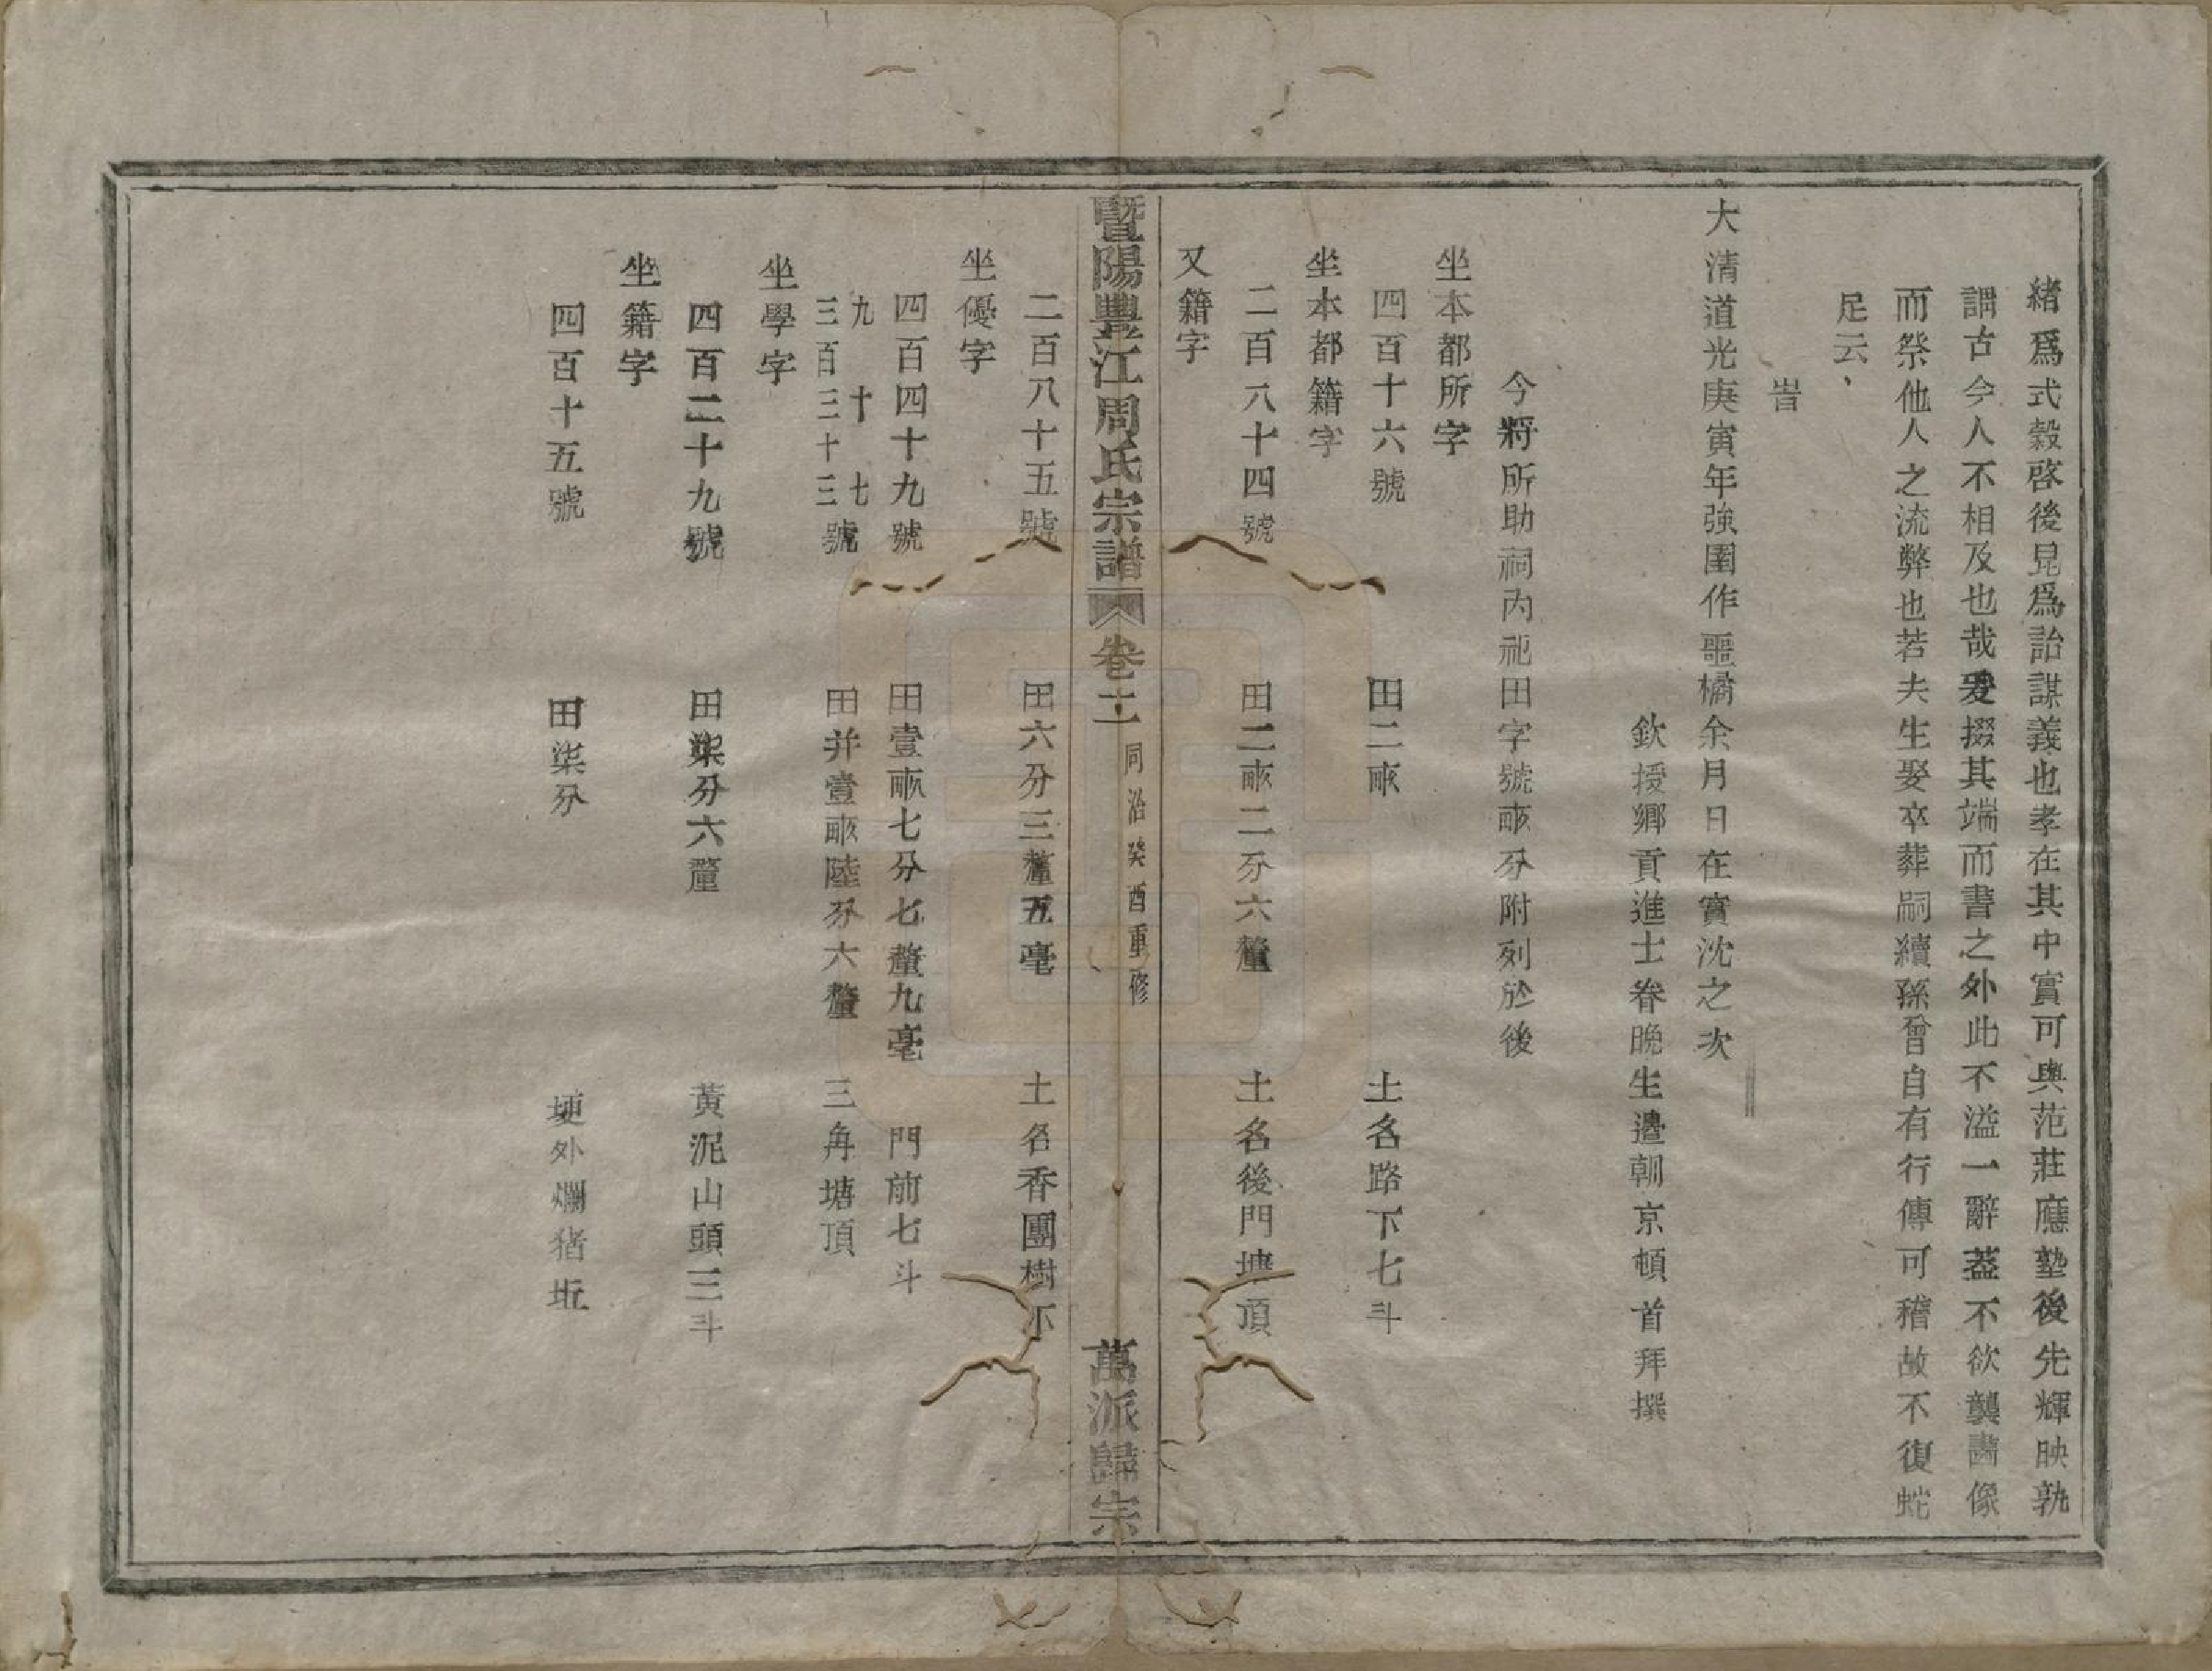 緒爲式穀啓後昆爲詒謀義也孝在其中實可與范莊應塾後先輝映孰
謂古今人不相及也哉爰掇其端而書之外此不溢一辭葢不欲襲畵像
而祭他人之流弊也若夫生娶卒葬嗣續孫曾自有行傳可稽故不復蛇
足云
旹
大清道光庚寅年強圉作噩橘余月日在實沈之次
欽授鄉貢進士眷晚生邉朝京頓首拜撰
今將所助祠內祀田字號畝分附列於後
坐本都所字
四百十六號 田二畝 土名路下七斗
坐本都籍字
二百八十四號 田二畝二分六釐 土名後門塘頂
又籍字
暨陽豐江周氏宗譜 卷十二 同治癸酉重修 萬派歸宗
二百八十五號 田六分三釐五毫 土名香團樹下
坐優字
四百四十九號 田壹畝七分七釐九毫 門前七斗
九十七
三百三十三號 田并壹畝陸分六釐 三角塘頂
坐學字
四百二十九號 田柒分六釐 黃泥山頭三斗
坐籍字
四百十五號 田柒分 埂外爛猪坵